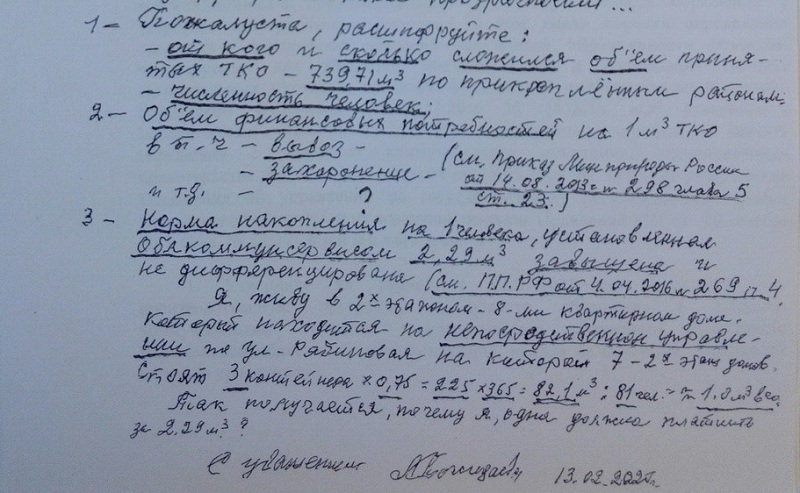 1 - Пожалуста, расшифруйте:
- от кого и сколько сложился объём приня-
тых ТКО - 739,71 м³ по прикреплённым районам;
- численность человек;
2 - Объём финансовых потребностей на 1 м³ ТКО
в т.ч - вывоз -
- захоронение - (см. Приказ Минприроды России
от 14.08.2013 г № 298 глава 5
и т.д. - ? ст. 23.)
3 - Норма накопления на 1 человека, установленная
2,29 м³ завышена и
не дифференцирована (см. П.П.РФ от 4.04.2016 № 269 п. 4
Я, живу в 2х этажном - 8-ми квартирном доме,
который находится на непосредственном управле-
нии по ул. Рябиновая на которой 7 - 2х этаж домов.
Стоят 3 контейнера × 0,75 = 2,25 × 365 = 82,1 м³ : 81 чел. =
Так получается, почему я, одна должна платить
за 2.29 м³?
С уважением 13.02.202